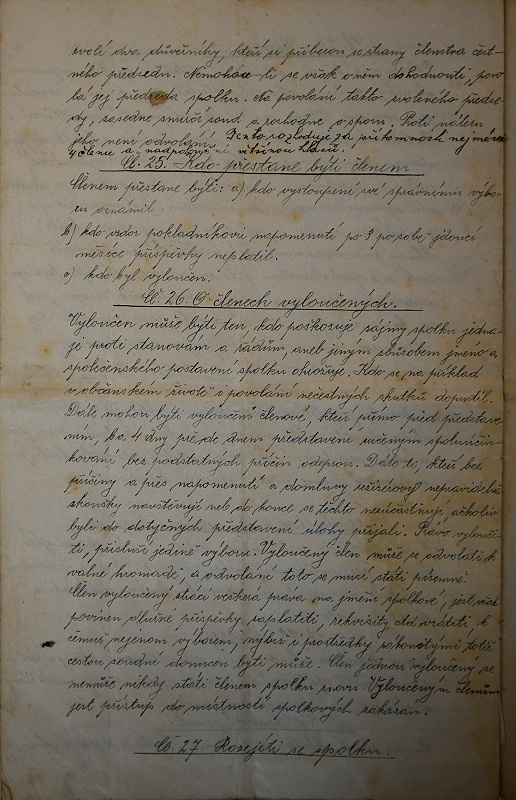 zvolí dva důvěrníky, kteří si přiberou ze strany členstva čest-
ného předsedu. Nemohou-li se však o něm dohodnouti, povo-
lá jej předseda spolku. Na povolání takto zvoleného předse-
dy, zasedne smírčí soud a rozhodne o sporu. Proti nálezu
jeho není odvolání. Tento rozhoduje za přítomnosti nejméně
4 členů a nadpoloviční většinou hlasů.
Čl. 25. Kdo přestane býti členem
Členem přestane býti: a) kdo vystoupení své správnímu výbo-
ru oznámil
b) kdo vzdor pokladníkovu napomenutí po 3 po sobě jdoucí
měsíce příspěvky neplatil.
c) kdo byl vyloučen.
Čl. 26. O členech vyloučených.
Vyloučen může býti ten, kdo poškozuje zájmy spolku, jedna-
je proti stanovám a řádům, aneb jiným způsobem jméno a
společenského postavení spolku ohrožuje. Kdo se na příklad
v občanském životě i povolání nečestných skutků dopustil.
Dále mohou býti vyloučeni členové, kteří přímo před představe-
ním, ba 4 dny přede dnem představení určeným spoluúčin-
kování bez podstatných příčin odeprou. Dále ti, kteří bez
příčiny a přes napomenutí a domluvy režisérovy nepravidelně
zkoušky navštěvují neb do konce se těchto nezúčastňují, ačkoliv
byli do dotyčných představení úlohy přijali. Právo vylouči-
ti, přísluší jedině výboru. Vyloučený člen může se odvolati k
valné hromadě, a odvolání toto se musí státi písemně.
Člen vyloučený ztrácí veškera prava na jmění spolkové, jest však
povinen dlužné příspěvky zaplatiti, rekvisity atd vrátiti k
čemuž nejenom výborem, nýbrž i prostředky zákonitými totiž
cestou soudní donucen býti může. Člen jednou vyloučený se
nemůže nikdy státi členem spolku znovu. Vyloučeným členům
jest přístup do místností spolkových zakázán.
Čl. 27. Rozejíti se spolku.